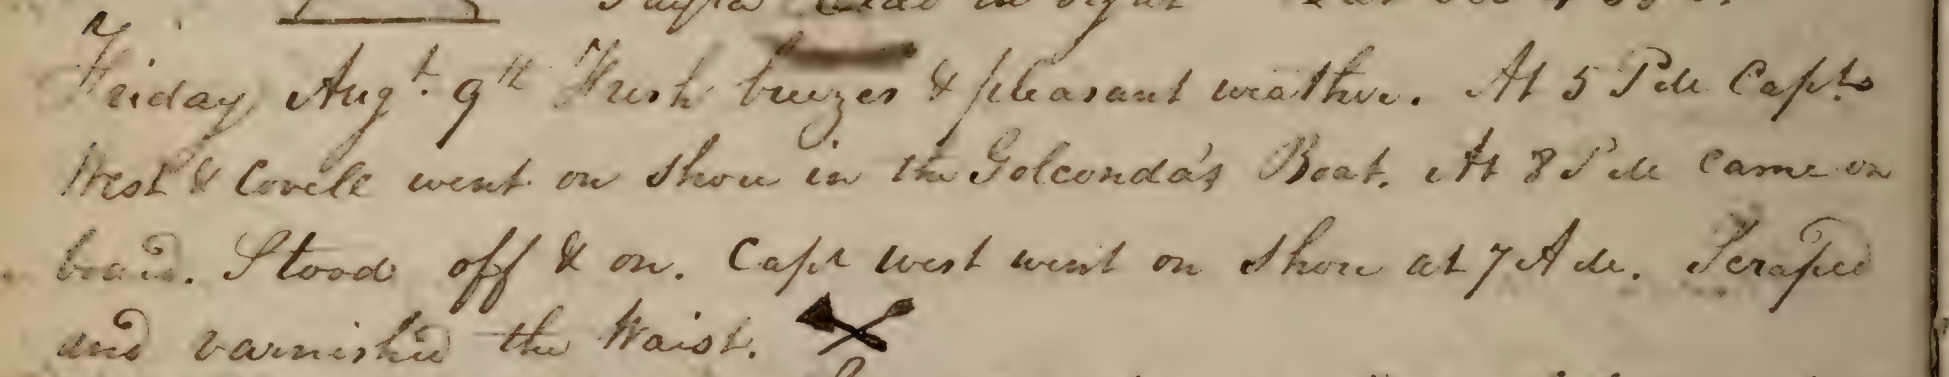 in sight
Friday Augt. 9th Fresh breezes & pleasant weather. At 5 P M Capts
West & Covell went on shore in the Golconda's Boat. At 8 P M came on
board. Stood off & on. Capt West went on shore at 7 A M. Scraped
and varnished the Waist.